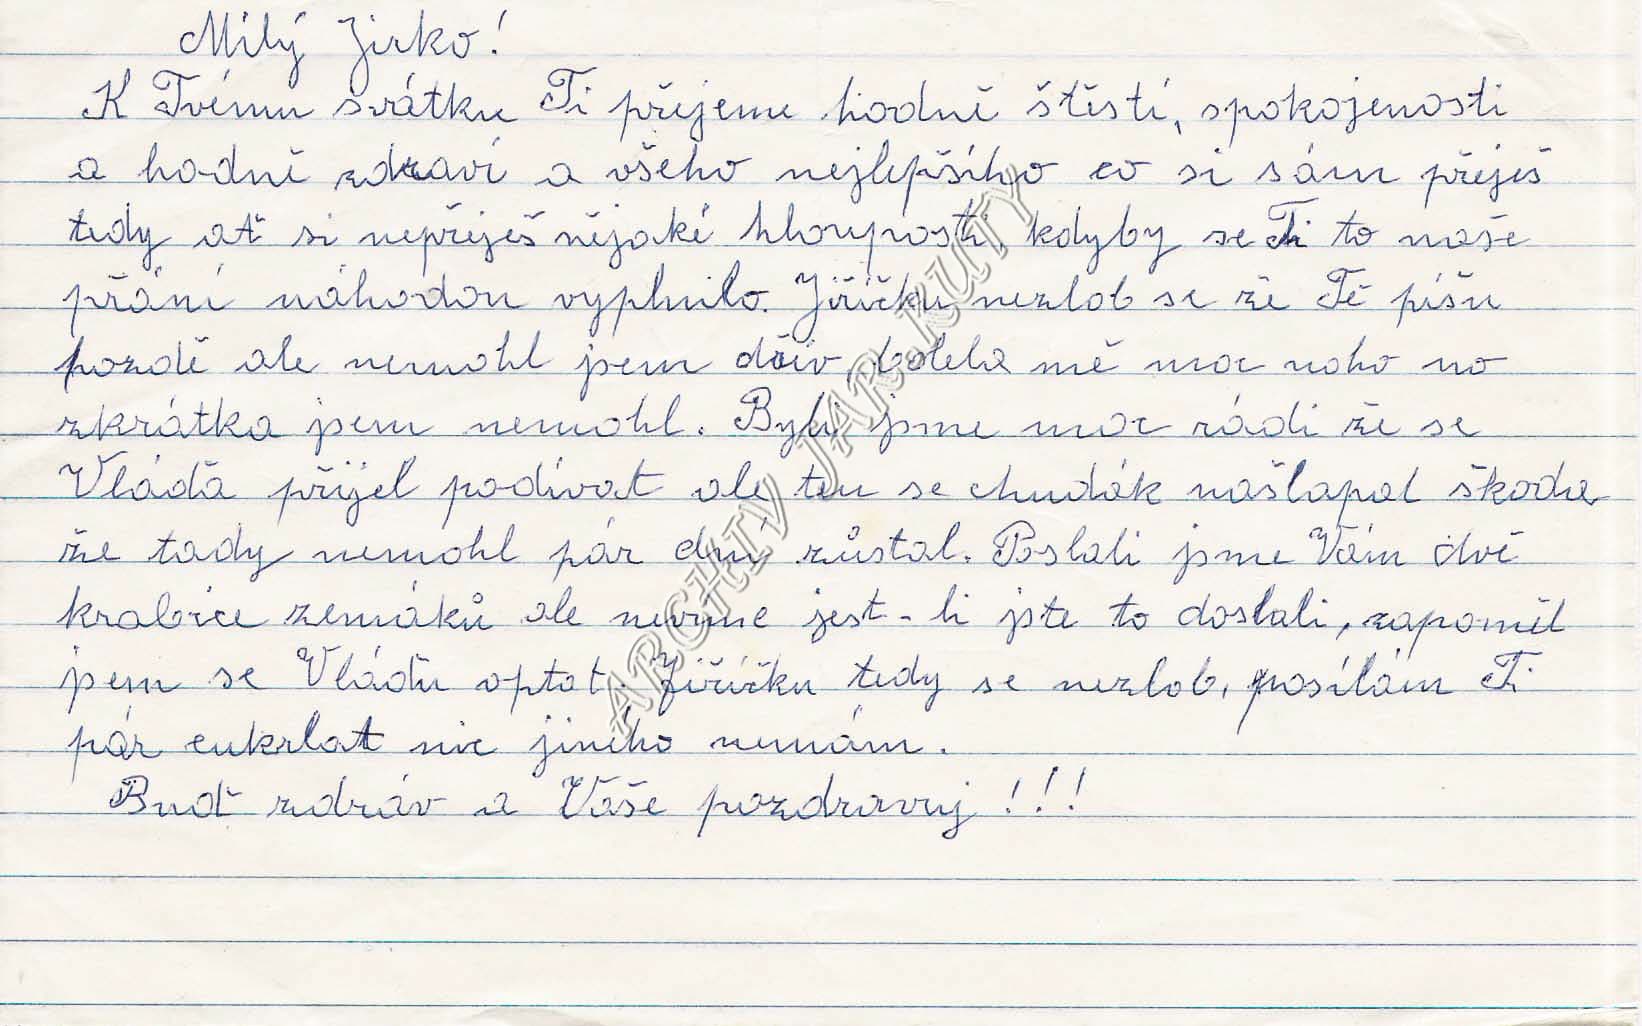 Milý Jirko!
K Tvému svátku Ti přejeme hodně štěstí, spokojenosti
a hodně zdraví a všeho nejlepšího co si sám přeješ
tedy ať si nepřeješ nějaké hlouposti, kdyby se Ti to naše
přání náhodou vyplnilo. Jiříčku nezlob se že Tě píšu
pozdě ale nemohl jsem dřív, bolela mě moc noho no
zkrátka jsem nemohl. Byli jsme moc rádi že se
Vláďa přijel podívat ale ten se chudák našlapal škoda
že tady nemohl pár dní zůstal. Poslali jsme Vám dvě
krabice zemáků ale nevíme jest-li jste to dostali, zapoměl
jsem se Vláďu optat. Jiříčku tedy se nezlob, posílám Ti
pár cukrlat nic jiného nemám.
Buď zdráv a Vaše pozdravuj!!!
ARCHIV JAR.KUTÝ